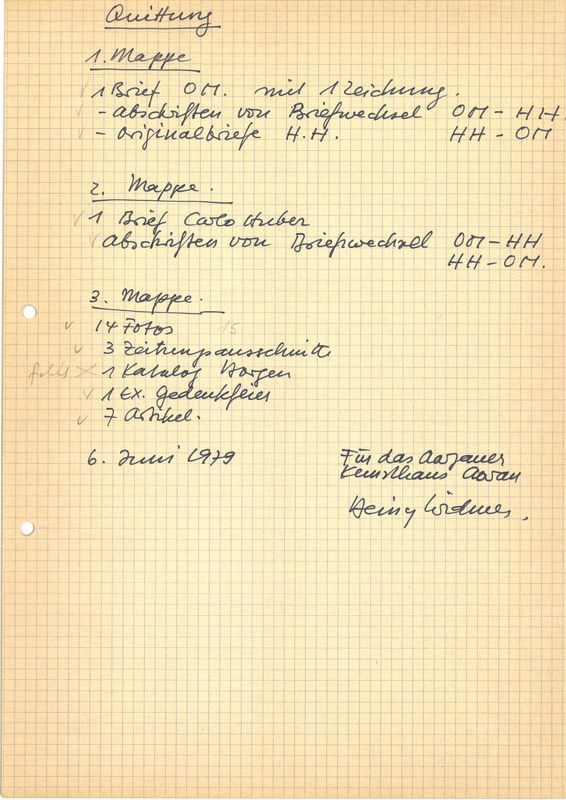 Quittung
1. Mappe
✓ 1 Brief OM. mit 1 Zeichnung.
✓ - Abschriften von Briefwechsel OM - HH
✓ - Originalbriefe H.H. HH - OM
2. Mappe.
✓ 1 Brief Carlo Huber
✓ Abschriften von Briefwechsel OM - HH
HH - OM.
3. Mappe.
✓ 14 Fotos 15
✓ 3 Zeitungsausschnitte
fehlt × 1 Katalog Horgen
✓ 1 Ex. Gedenkfeier
✓ 7 Artikel.
6. Juni 1979
Für das Aargauer
Kunsthaus Aarau
Heiny Widmer.